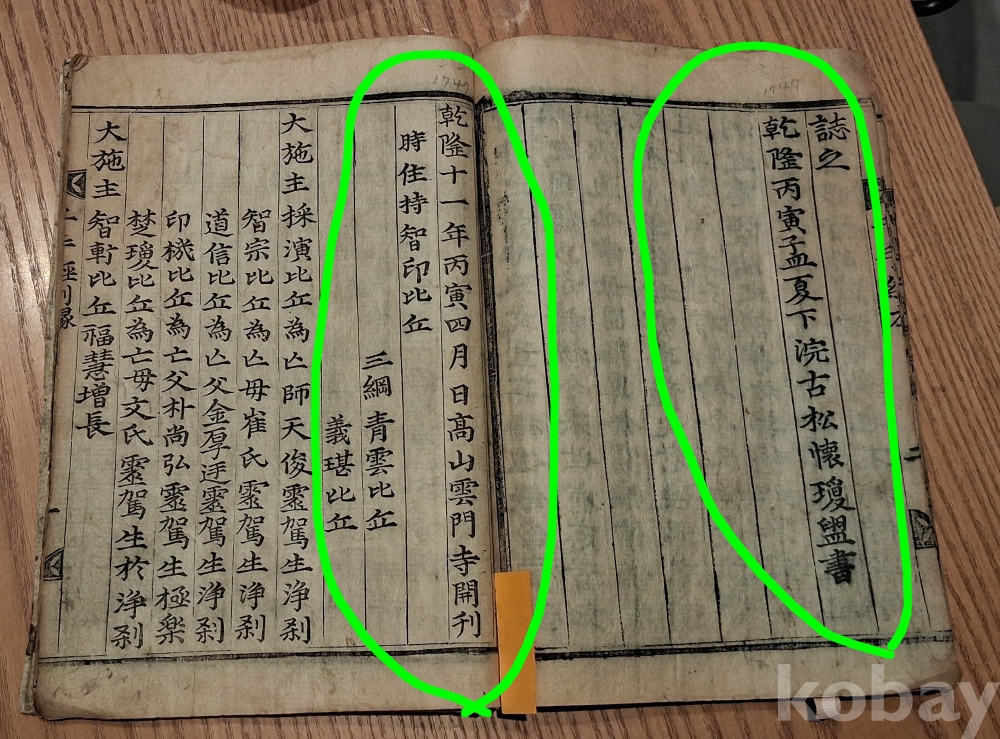 1747
誌之
乾隆丙寅孟夏下浣古松懷瓊盥書
二
1747
乾隆十一年丙寅四月日髙山雲門寺開刋
時住持智印比丘
三綱青雲比丘
義比丘
大施主採演比丘為亾師天俊靈駕生淨刹
智宗比丘為亾母崔氏靈駕生淨刹
道信比丘為亾父金厚靈駕生淨刹
印機比丘為亡父朴尚弘靈駕生極楽
楚瓊比丘為亡母文氏靈駕生於淨刹
大施主智軒比丘福慧增長
kobay